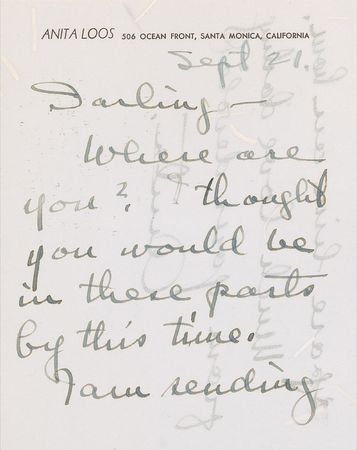 ANITA LOOS 506 OCEAN FRONT, SANTA MONICA, CALIFORNIA
Sept 21.
Darling—
Where are
you? I thought
you would be
in these parts
by this time.
I am sending